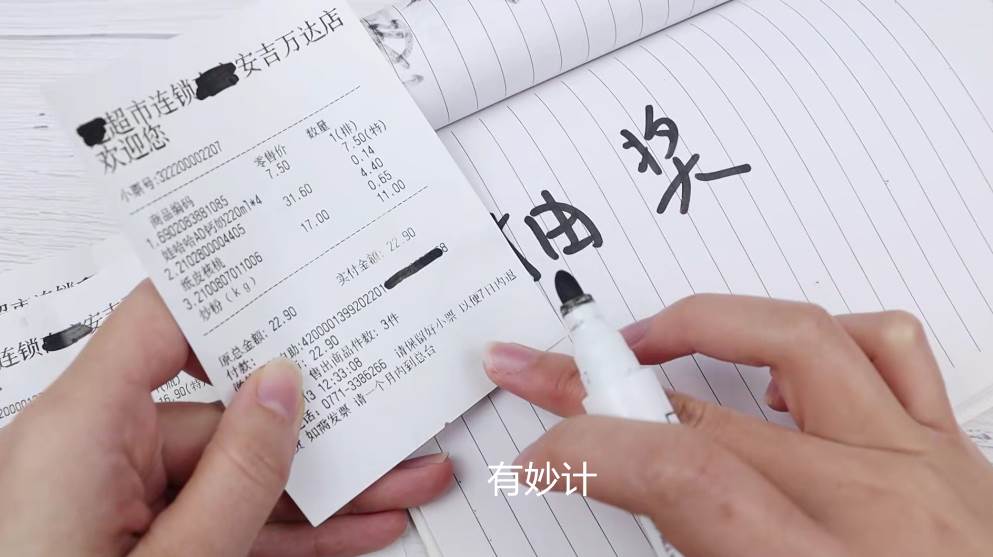 超市连锁 安吉万达店
欢迎您
小票号:322200002207
商品编码 零售价 数量
1.6902083881085 7.50 1(排)
娃哈哈AD钙奶220ml*4 7.50(特)
2.2102800004405 31.60 0.14
纸皮核桃 4.40
3.2100807011006 17.00 0.65
炒粉(kg) 11.00
原总金额: 22.90 实付金额: 22.90
付款:
助:4200001399202201
22.90
售出商品件数: 3件
12:33:08
话: 0771-3386266 请保留好小票 以便7日内退
如需发票 请一个月内到总台
奖
有妙计